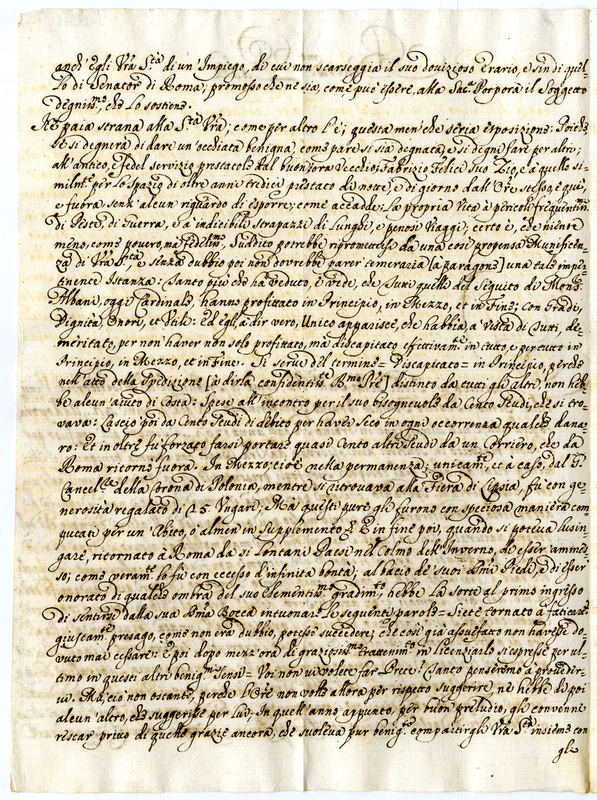 anch' Egli V̄ra S.tà di un' Impiego, di cui non scarseggia il suo dovizioso Erario, e sin di quel-
lo di Senator di Roma; promosso che ne sia, come può essere, alla Sac.a Porpora il Soggetto
degniss.mo, che lo sostiene.
Nè paia strana alla S.tà V̄ra, come per altro l'è, questa men che seria esposizione: Poiche
se si degnerà di dare un' occhiata benigna, come pare si sia degnata, e si degni fare per altri,
all' antico, e fedel servizio prestatole dal buon'ora Vecchio Fabrizio Felici suo Zio, e a quello si-
milm.te per lo spazio di oltre anni tredici prestato di nove, e di giorno dall' O're stesso, e quì,
e fuora senz' alcun riguardo di esporre, come accadde, la propria Vita à pericoli frequentiss.mi
di Peste, di Guerra, e à indicibile strapazzi di Lunghi, e penosi Viaggi; certo è, che niente
meno, come povero, mà fedeliss.mo Suddito potrebbe ripromettersi da una così propensa Munificen-
za di V̄ra S.tà, e senza dubbio poi non dovrebbe parer temeraria [a paragone] una tale imper-
tinente Istanza: Tanto più che hà veduto, e vede, che tutti quelli del Seguito di Mons.r
Albani, oggi Cardinale, hanno profittato in Principio, in Mezzo, et in Fine; con Gradi,
Dignità, Onori, et Utili: Ed egli, à dir vero, Unico apparisce, che habbia, a Vista di tutti, de-
meritato, per non haver non solo profittato, mà discapitato effettivam.te in tutto, e per tutto in
Principio, in Mezzo, et in Fine. Si serve del termine = Discapitato = in Principio, perche
nell' atto della Spedizione [à dirla confidentem.te B.mo P̄re] distinto da tutti gli altri non heb-
be alcun' aiuto di Costa: Spese all' incontro per il suo bisognevole da Cento Scudi, che si tro-
vava: Lasciò poi da Cento Scudi di debito per haver seco in ogni occorrenza qualche dana-
ro: Et in oltre fù forzato farsi portare quasi Cento altri Scudi da un Corriero, che da
Roma ritornò fuora. In Mezzo, cioè nella permanenza; unicam.te, et à caso, dal G.
Cancell.re della Corona di Polonia, mentre si ritrovava alla Fiera di Lipsia, fù con ge-
nerosità regalato di 25 Ungari; Mà questi pure gli furono con speciosa maniera com-
putati per un' Abito, ò almen in supplemento. E in fine poi, quando si poteva lusin-
gare, ritornato à Roma da sì lontani Paesi nel Colmo dell' Inverno, di esser ammes-
so, come veram.te lo fù con eccesso d'infinita bontà, al bacio de' suoi S̄mi Piedi, e di esser
onorato di qualche ombra del suo Clementiss.mo gradim.to, hebbe la sorte al primo ingresso
di sentirsi dalla sua S̄ma Bocca intuonare le seguenti parole = Siete tornato à faticare
giustam.te presago, come non era dubbio, potesse succedere, che così già assuefatto non havesse do-
vuto mai cessare: E poi dopo mezz'ora di graziosiss.mo trattenim.to in licenziarlo si espresse per ul-
timo in questi altri benig.mi sensi = Voi non vi volete far Prete? Tanto penseremo à proveder-
vi. Mà, ciò non ostante, perche l'O're non volle allora per rispetto suggerire, nè hebbe di poi
alcun' altro, che suggerisse per lui; In quell' anno appunto, per buon preludio, gli convenne
restar privo di quelle grazie ancora, che soleva pur benig.te compartirgli V̄ra S.tà insieme con
gli